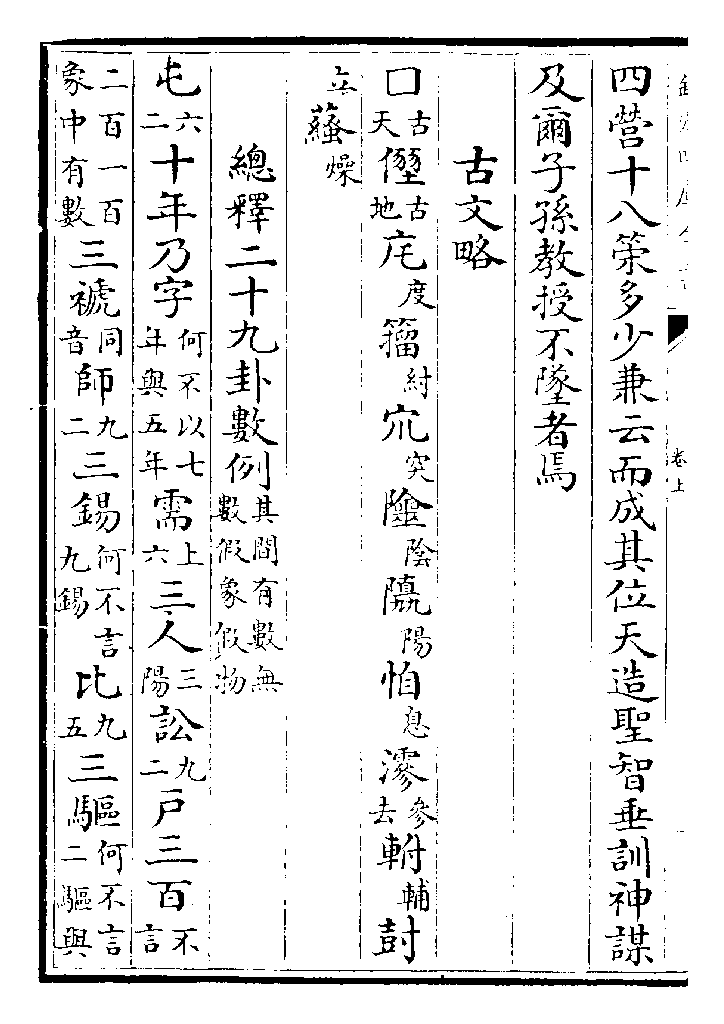 卷上
四營十八策多少兼云而成其位天造聖智垂訓神謀
及爾子孫教授不墜者焉
古文略
囗古天古地㡯度籀紂宂突陰陽怕息瀏參去軵輔尌
立燥
總釋二十九卦數例其間有數無數假象假物
屯六二十年乃字何不以七年與五年需上六三人三陽訟九二戸三百不言
二百一百象中有數三褫同音師九二三錫何不言九錫比九五三驅何不言二驅與